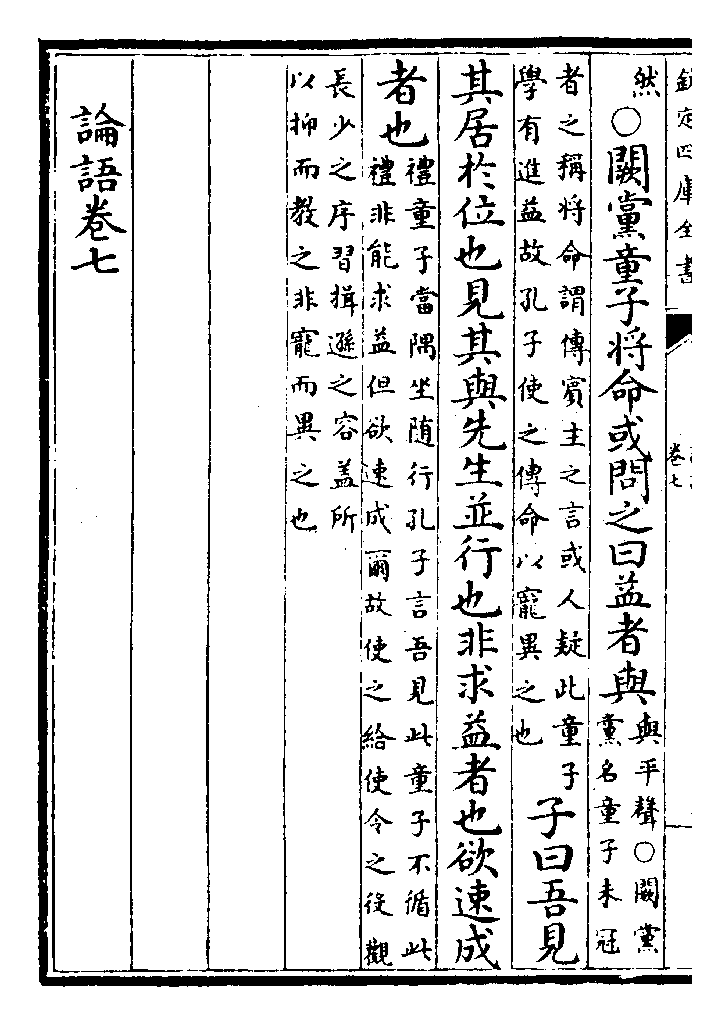 欽定四庫全書
卷七
然
○闕黨童子將命或問之曰益者與
與平聲○闕黨
黨名童子未冠
者之稱將命謂傳賓主之言或人疑此童子
學有進益故孔子使之傳命以寵異之也
子曰吾見
其居於位也見其與先生並行也非求益者也欲速成
者也
禮童子當隅坐随行孔子言吾見此童子不循此
禮非能求益但欲速成爾故使之給使令之役觀
長少之序習揖遜之容盖所
以抑而教之非寵而異之也
論語卷七